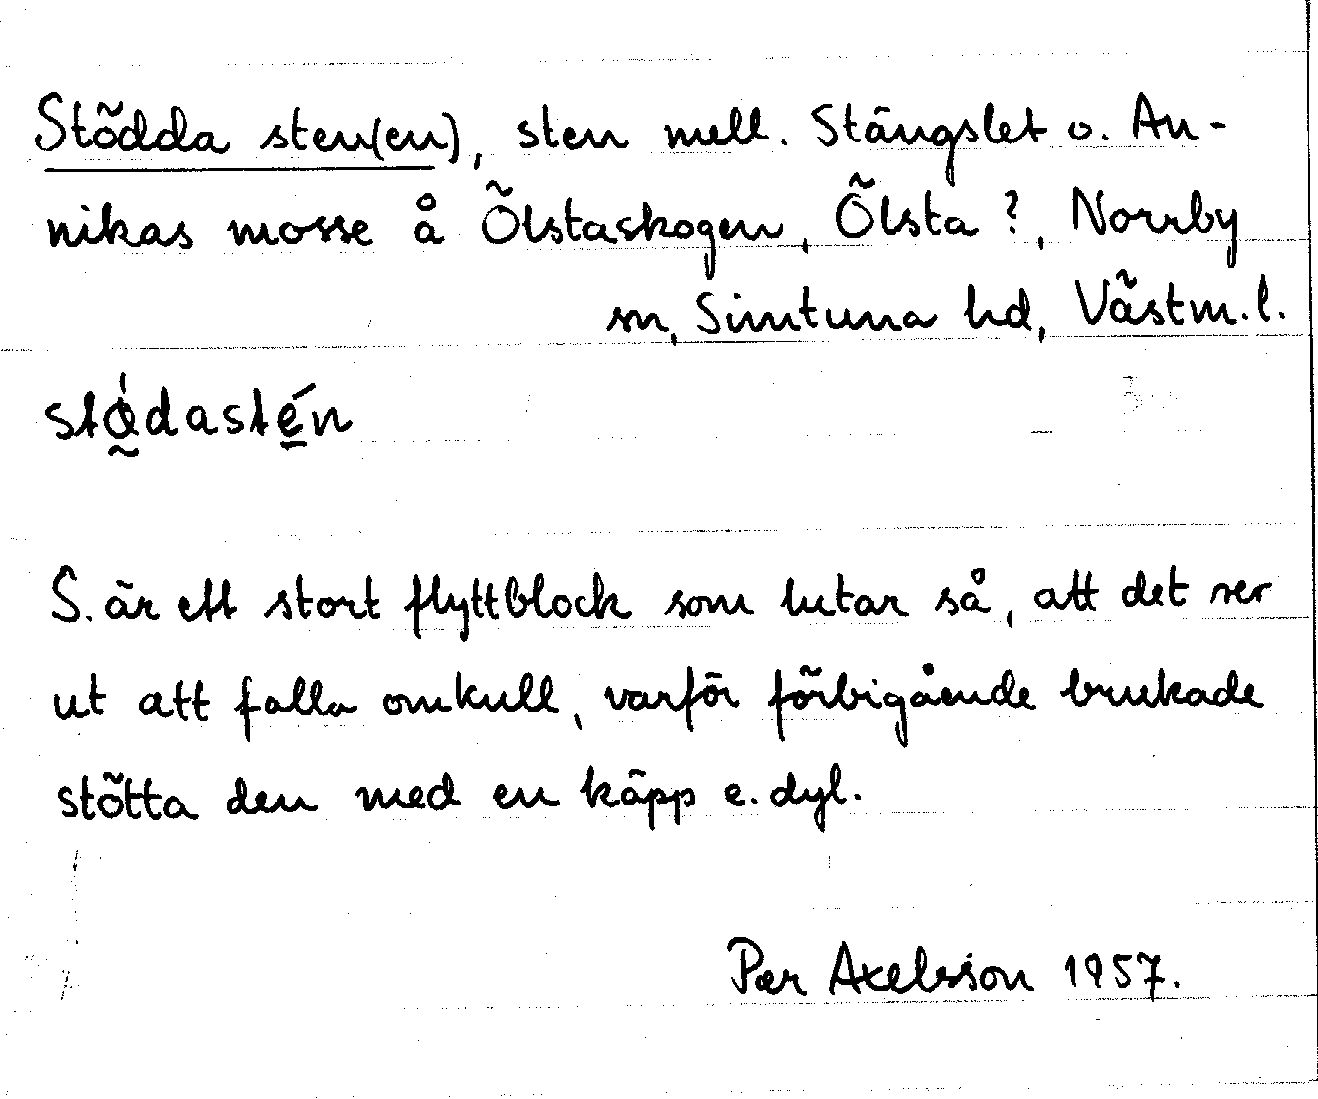 Stödda sten(en), sten mell. Stängslet o. An-
nikas mosse å Ölstaskogen, Ölsta ?, Norrby
sn, Simtuna hd, Västm. l.
stø̰̀dasté̱n
S. är ett stort flyttblock som lutar så, att det ser
ut att falla omkull, varför förbigående brukade
stötta den med en käpp e. dyl.
Per Axelsson 1957.